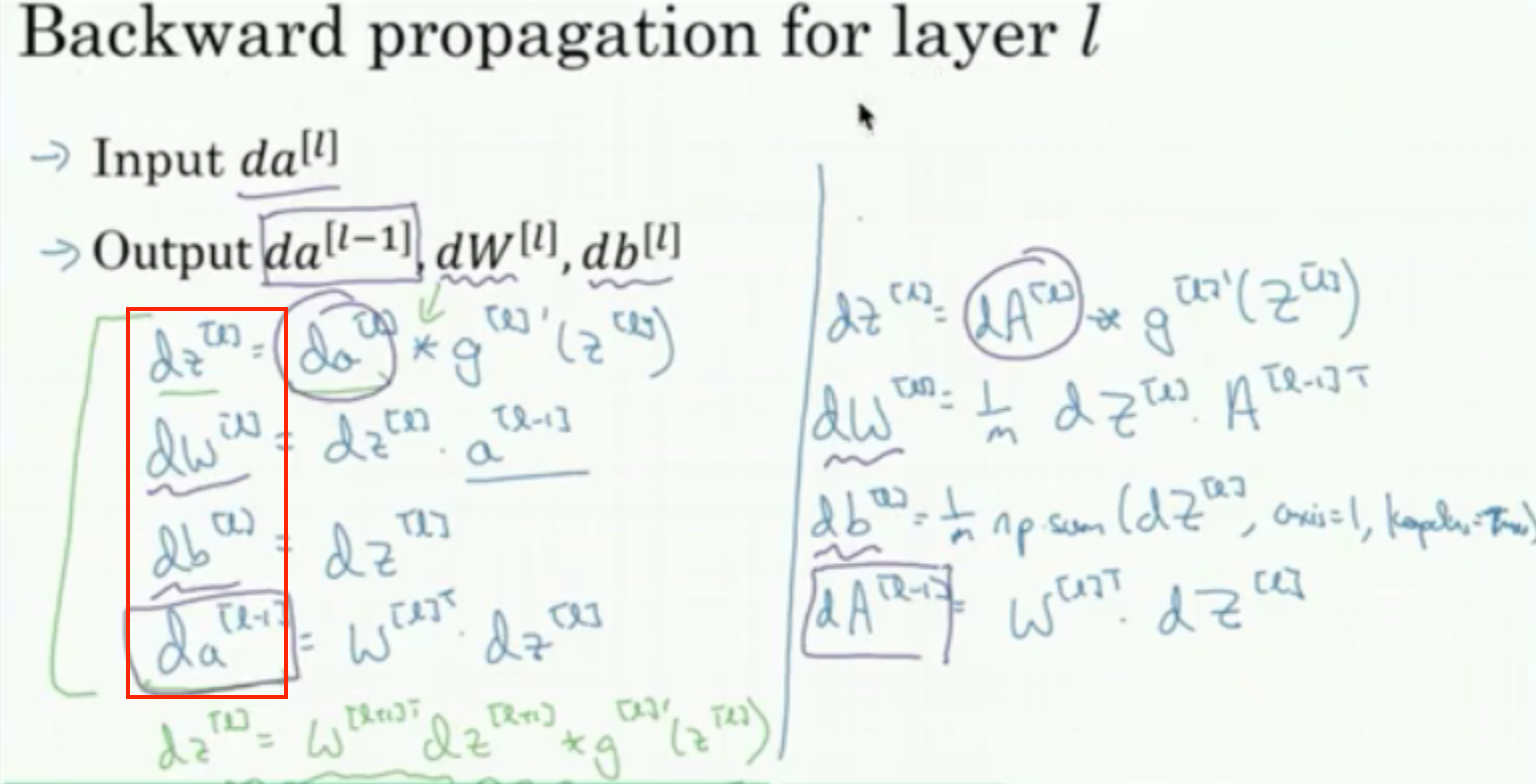 Backward propagation for layer l
→ Input da^[l]
→ Output da^[l-1], dW^[l], db^[l]
dz^[l] = da^[l] * g^[l]'(z^[l])
dw^[l] = dz^[l] · a^[l-1]
db^[l] = dz^[l]
da^[l-1] = w^[l]T · dz^[l]
dz^[l] = w^[l+1]T dz^[l+1] * g^[l]'(z^[l])
dz^[l] = dA^[l] * g^[l]'(z^[l])
dW^[l] = 1/m dZ^[l] · A^[l-1]T
db^[l] = 1/m np.sum(dZ^[l], axis=1, keepdims=True)
dA^[l-1] = W^[l]T · dZ^[l]